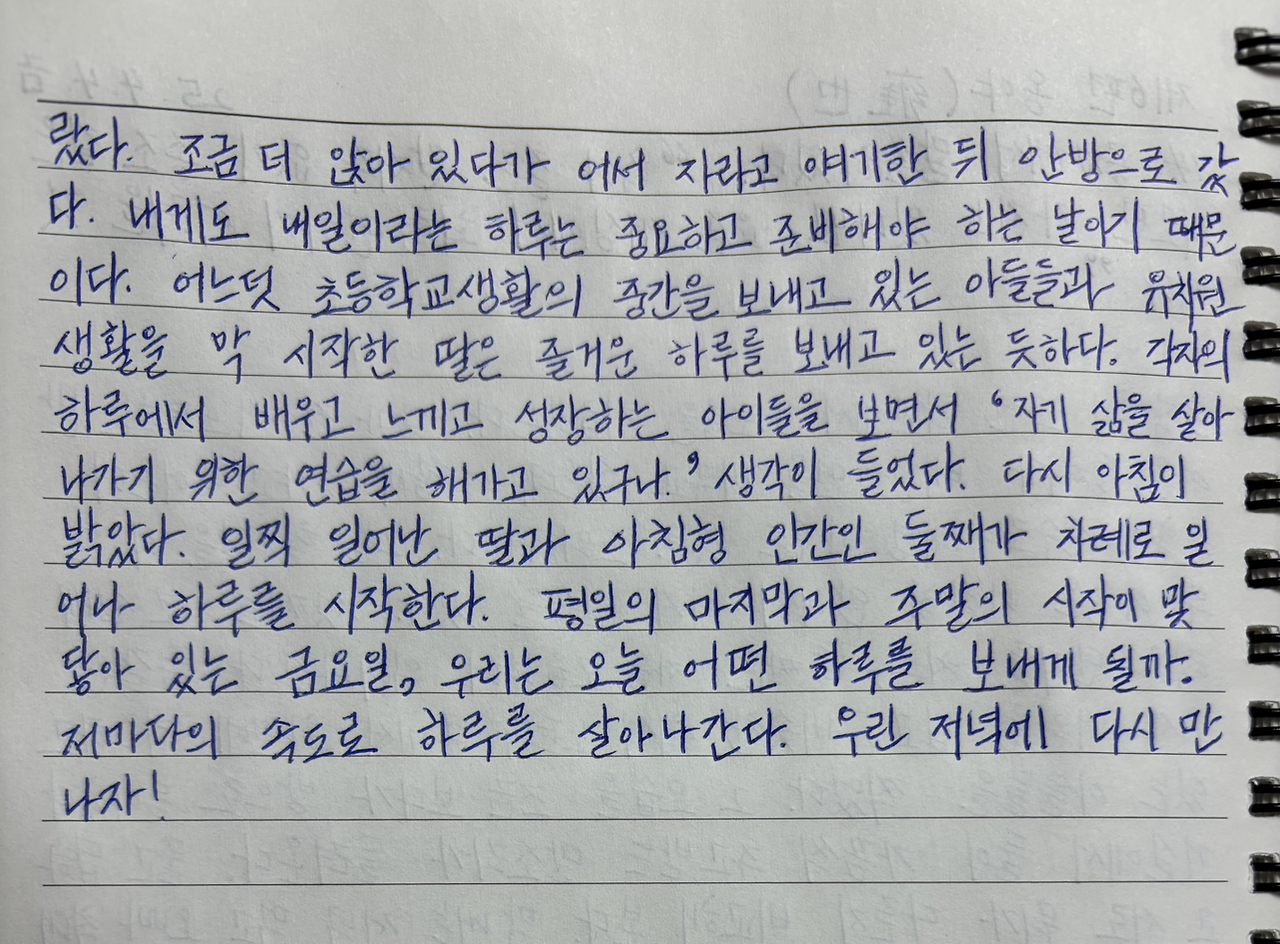 랐다. 조금 더 앉아 있다가 어서 자라고 얘기한 뒤 안방으로 갔
다. 내게도 내일이라는 하루는 중요하고 준비해야 하는 날이기 때문
이다. 어느덧 초등학교생활의 중간을 보내고 있는 아들들과 유치원
생활을 막 시작한 딸은 즐거운 하루를 보내고 있는 듯하다. 각자의
하루에서 배우고 느끼고 성장하는 아이들을 보면서 ‘자기 삶을 살아
나가기 위한 연습을 해가고 있구나.’ 생각이 들었다. 다시 아침이
밝았다. 일찍 일어난 딸과 아침형 인간인 둘째가 차례로 일
어나 하루를 시작한다. 평일의 마지막과 주말의 시작이 맞
닿아 있는 금요일, 우리는 오늘 어떤 하루를 보내게 될까.
저마다의 속도로 하루를 살아나간다. 우린 저녁에 다시 만
나자!